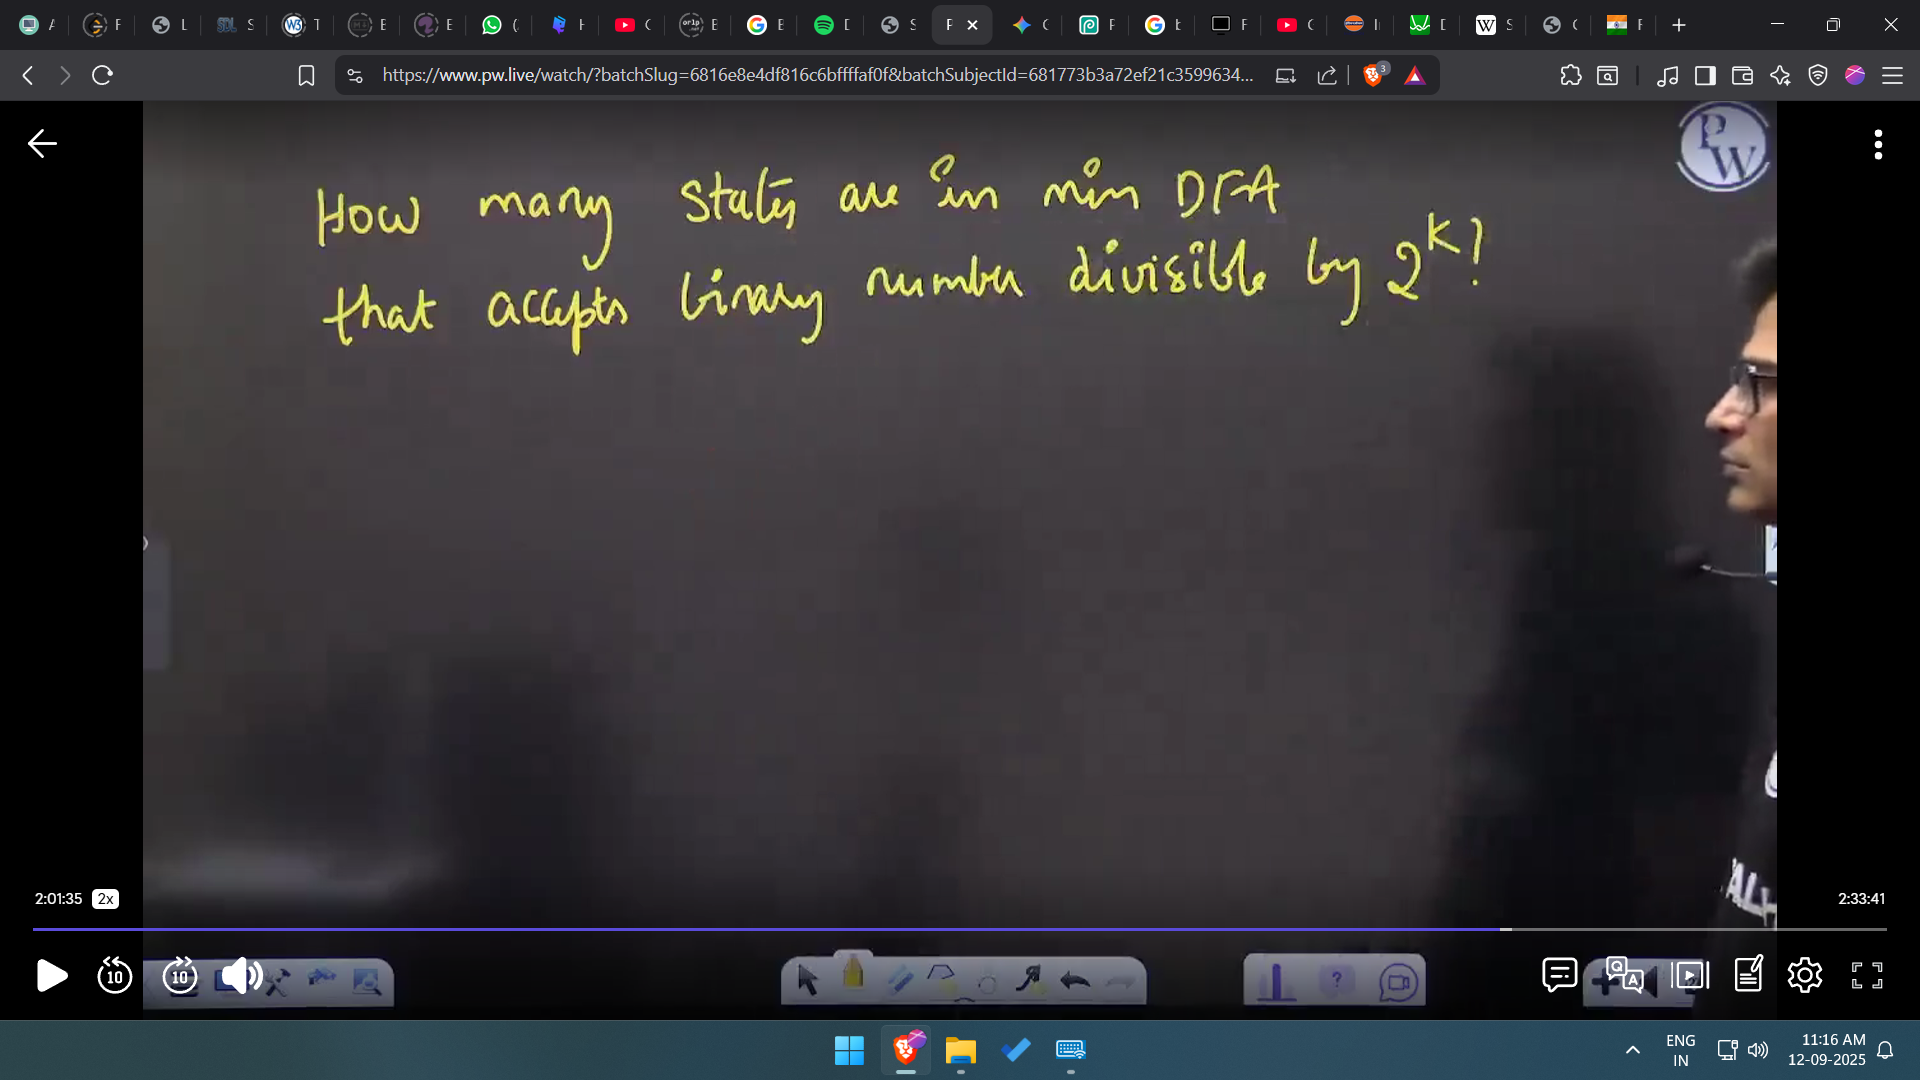 https://www.pw.live/watch/?batchSlug=6816e8e4df816c6bffffaf0f&batchSubjectId=681773b3a72ef21c3599634...
3
PW
How many states are in min DFA
that accepts binary number divisible by 2^k?
2:01:35 2x
2:33:41
10 10
ENG
IN
11:16 AM
12-09-2025